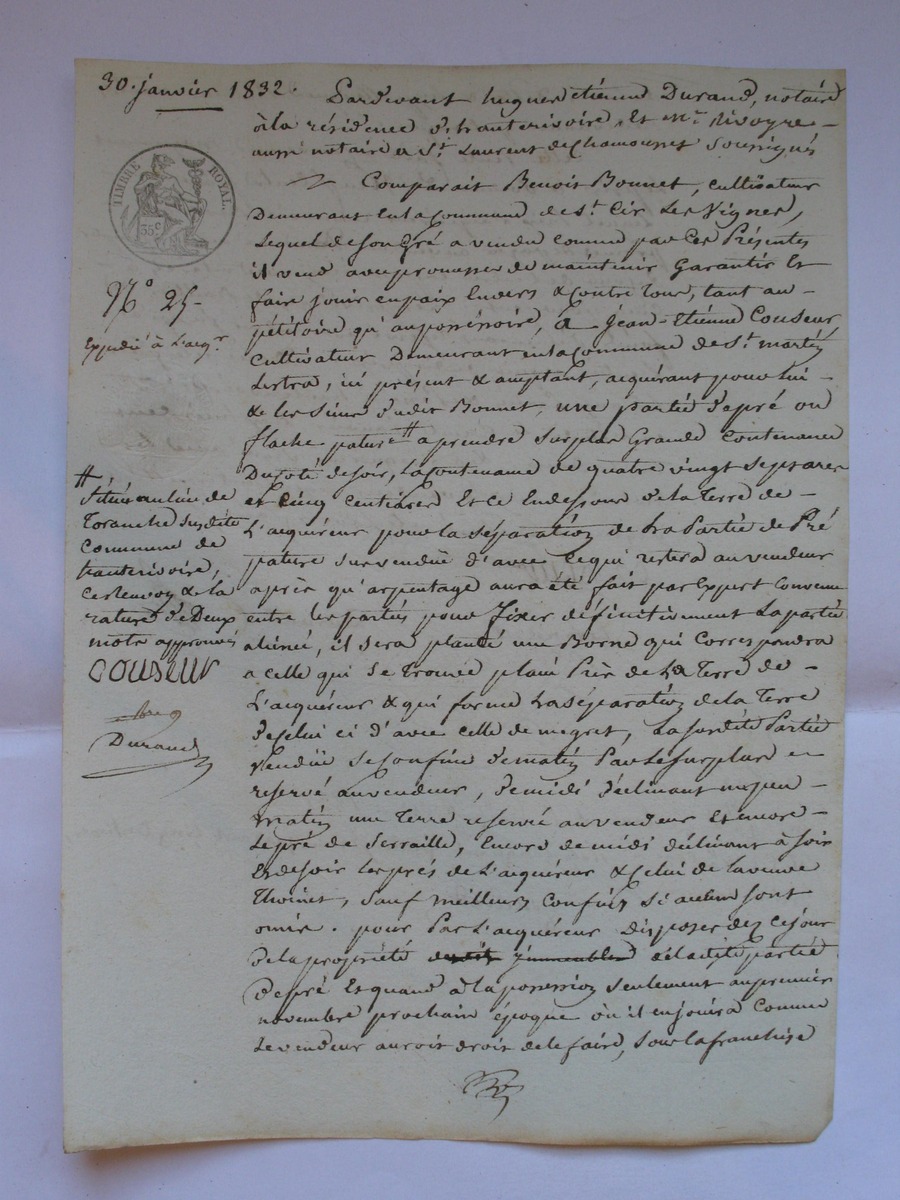 30. janvier 1832.
Pardevant hugues étienne Durand, notaire
à la résidence d'hauterivoire, Et Mr. Rivoyre
aussi notaire a St. Laurent de Chamousset soussignés
TIMBRE ROYAL.
35 c
Comparait Benoit Bonnet, cultivateur
Demeurant en la Commune de St. Cir Les Vignes,
Lequel de son Gré a vendu comme par Ces Présentes
il vend avec promesse de maintenir Garantir Et
faire jouir en paix Envers & Contre Tous, tant au
pétitoire qu'au possessoire, à Jean-Etienne Couseur
Cultivateur Demeurant en la Commune de St. martin
Lestra, ici présent & acceptant, acquérant pour Lui
& les Siens dudit Bonnet, une partie de pré ou
flache pature # a prendre Sur plus Grande Contenance
Du Coté de soir, La Contenance de quatre vingt sept ares
et Cinq Centiares Et ce En dessous de la Terre de
L'acquéreur pour la séparation de La Partie de Pré
pature sus vendue d'avec ce qui restera au vendeur
après qu'arpentage aura été fait par Expert Convenu
entre les parties pour fixer définitivement La partie
alienée, il sera planté une Borne qui Correspondra
a celle qui se Trouve planté Près de La Terre de
L'acquéreur & qui forme La séparation de la Terre
de celui ci d'avec celle de magret, La susdite Partie
Vendüe Se Confine de matin Par Le surplus
reservé au vendeur, de midi déclinant un peu
matin une Terre reservée au vendeur Et encore
Le pré de Serraille, Encore de midi déclinant à soir
Et de soir les prés de L'acquéreur & celui de la veuve
Thoinet, Sauf meilleurs Confins Si aucun sont
omis. pour Par L'acquéreur disposer dez ce jour
de la propriété de ladite partie
de pré Et quand à la possession seulement au premier
novembre prochain époque où il en jouira Comme
Le vendeur auroit droit de le faire, sous la franchise
No 25
Expedié à L'acqr
#
Située au lieu de
Toranche Susdite
Commune de
hauterivoire,
Ce renvoy & la
rature de Deux
mots approuvés
couseur
Durand